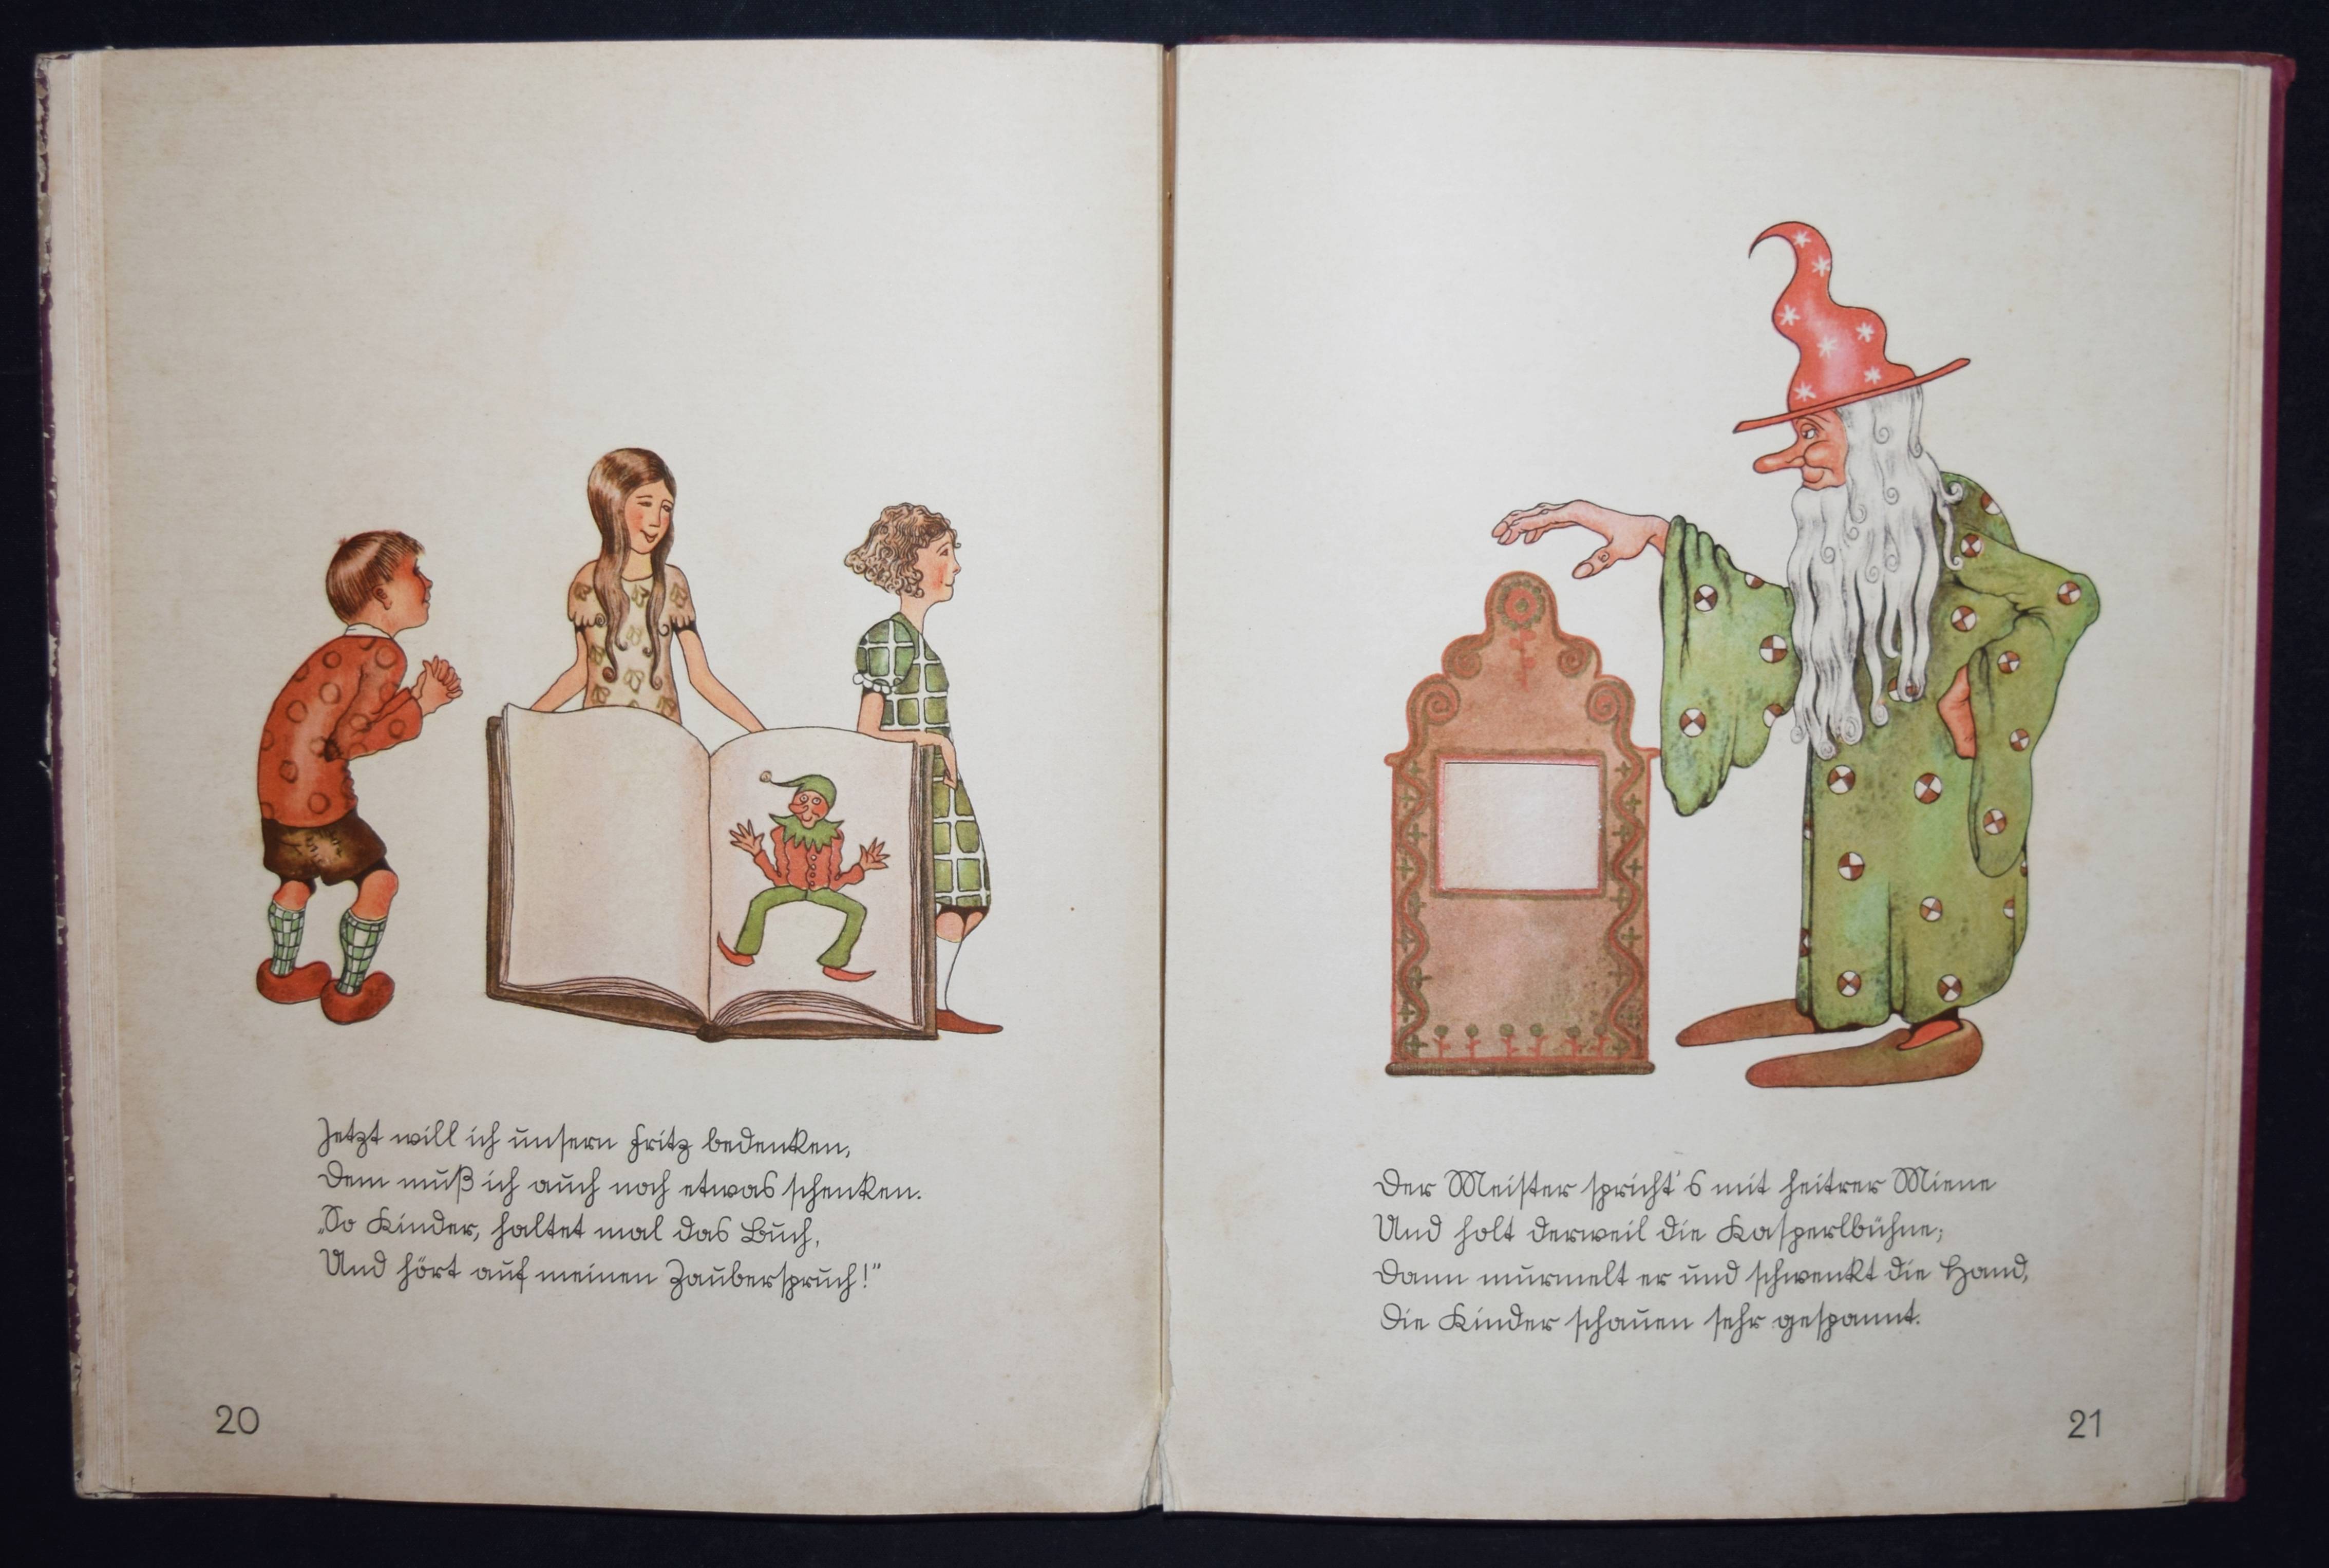 Jetzt will ich unsern Fritz bedenken,
Dem muß ich auch noch etwas schenken.
„So Kinder, haltet mal das Buch,
Und hört auf meinen Zauberspruch!“
20
Der Meister spricht's mit heitrer Miene
Und holt derweil die Kasperlbühne;
Dann murmelt er und schwenkt die Hand,
Die Kinder schauen sehr gespannt.
21